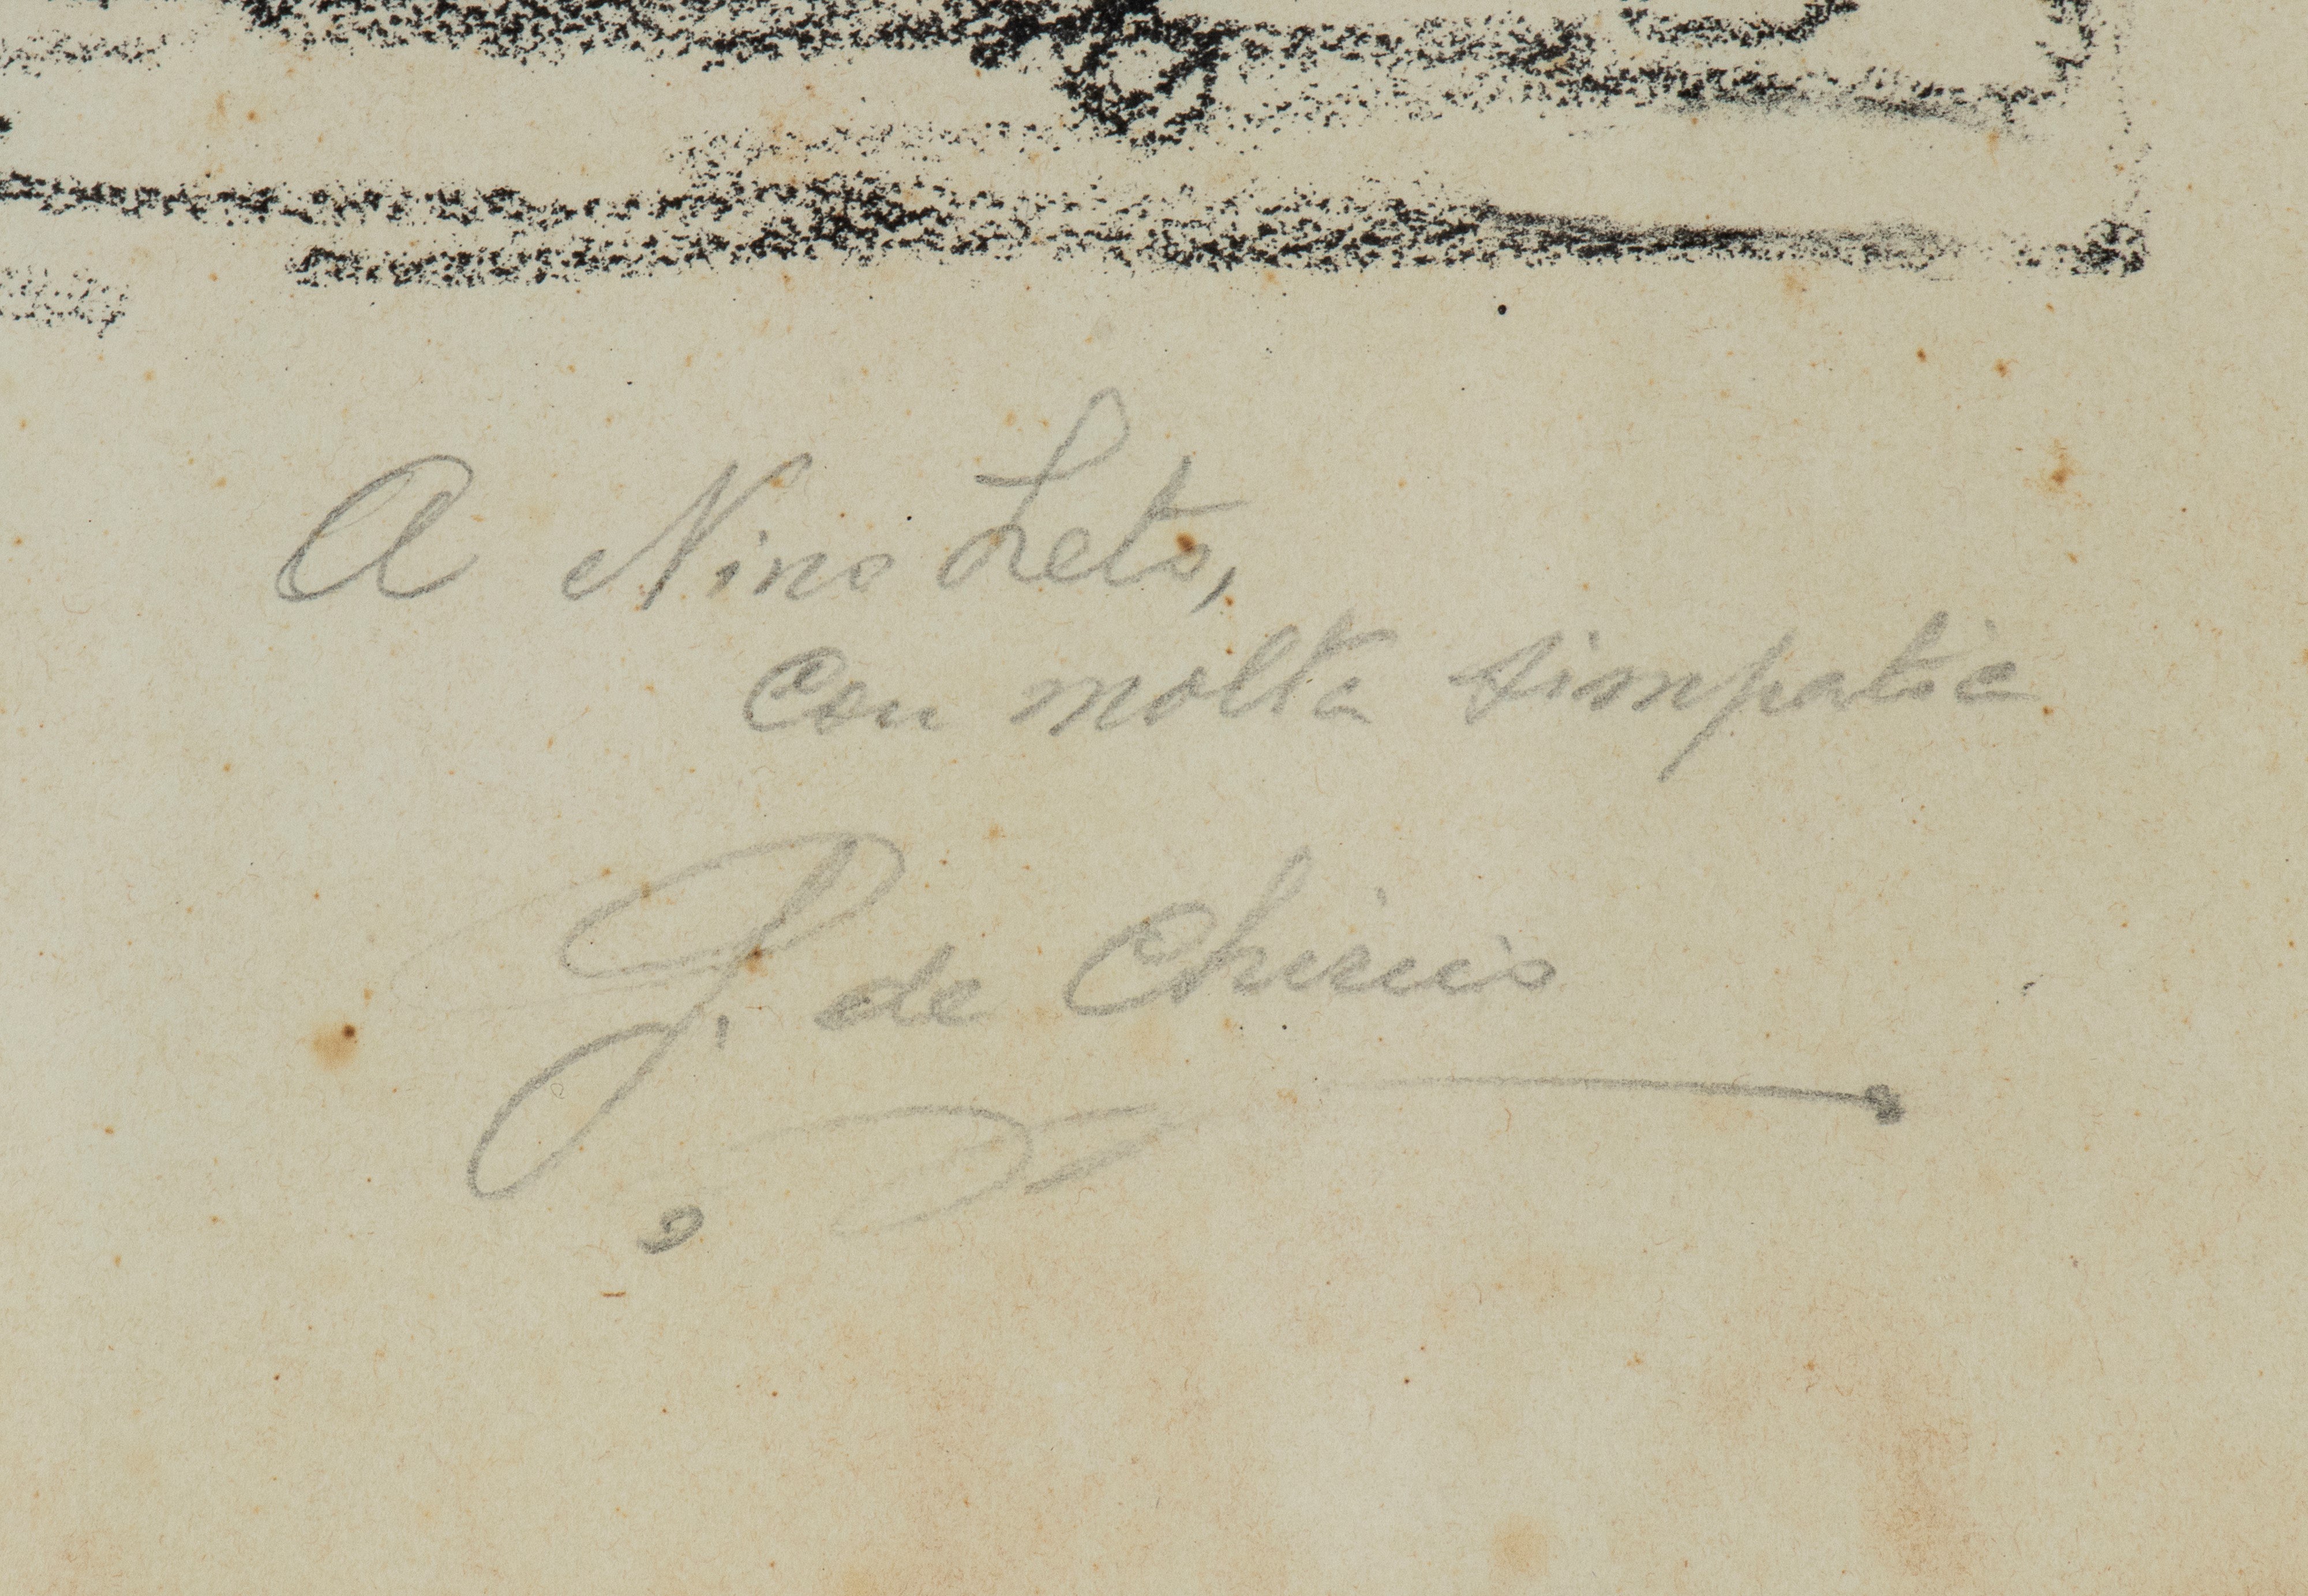 A Nino Leto,
Con molta simpatia
G. de Chirico